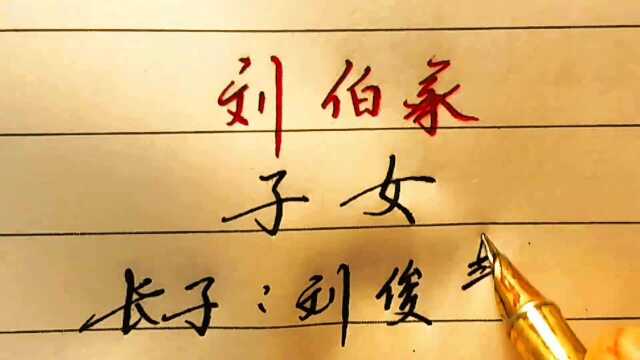 刘伯承
子女
长子:刘俊